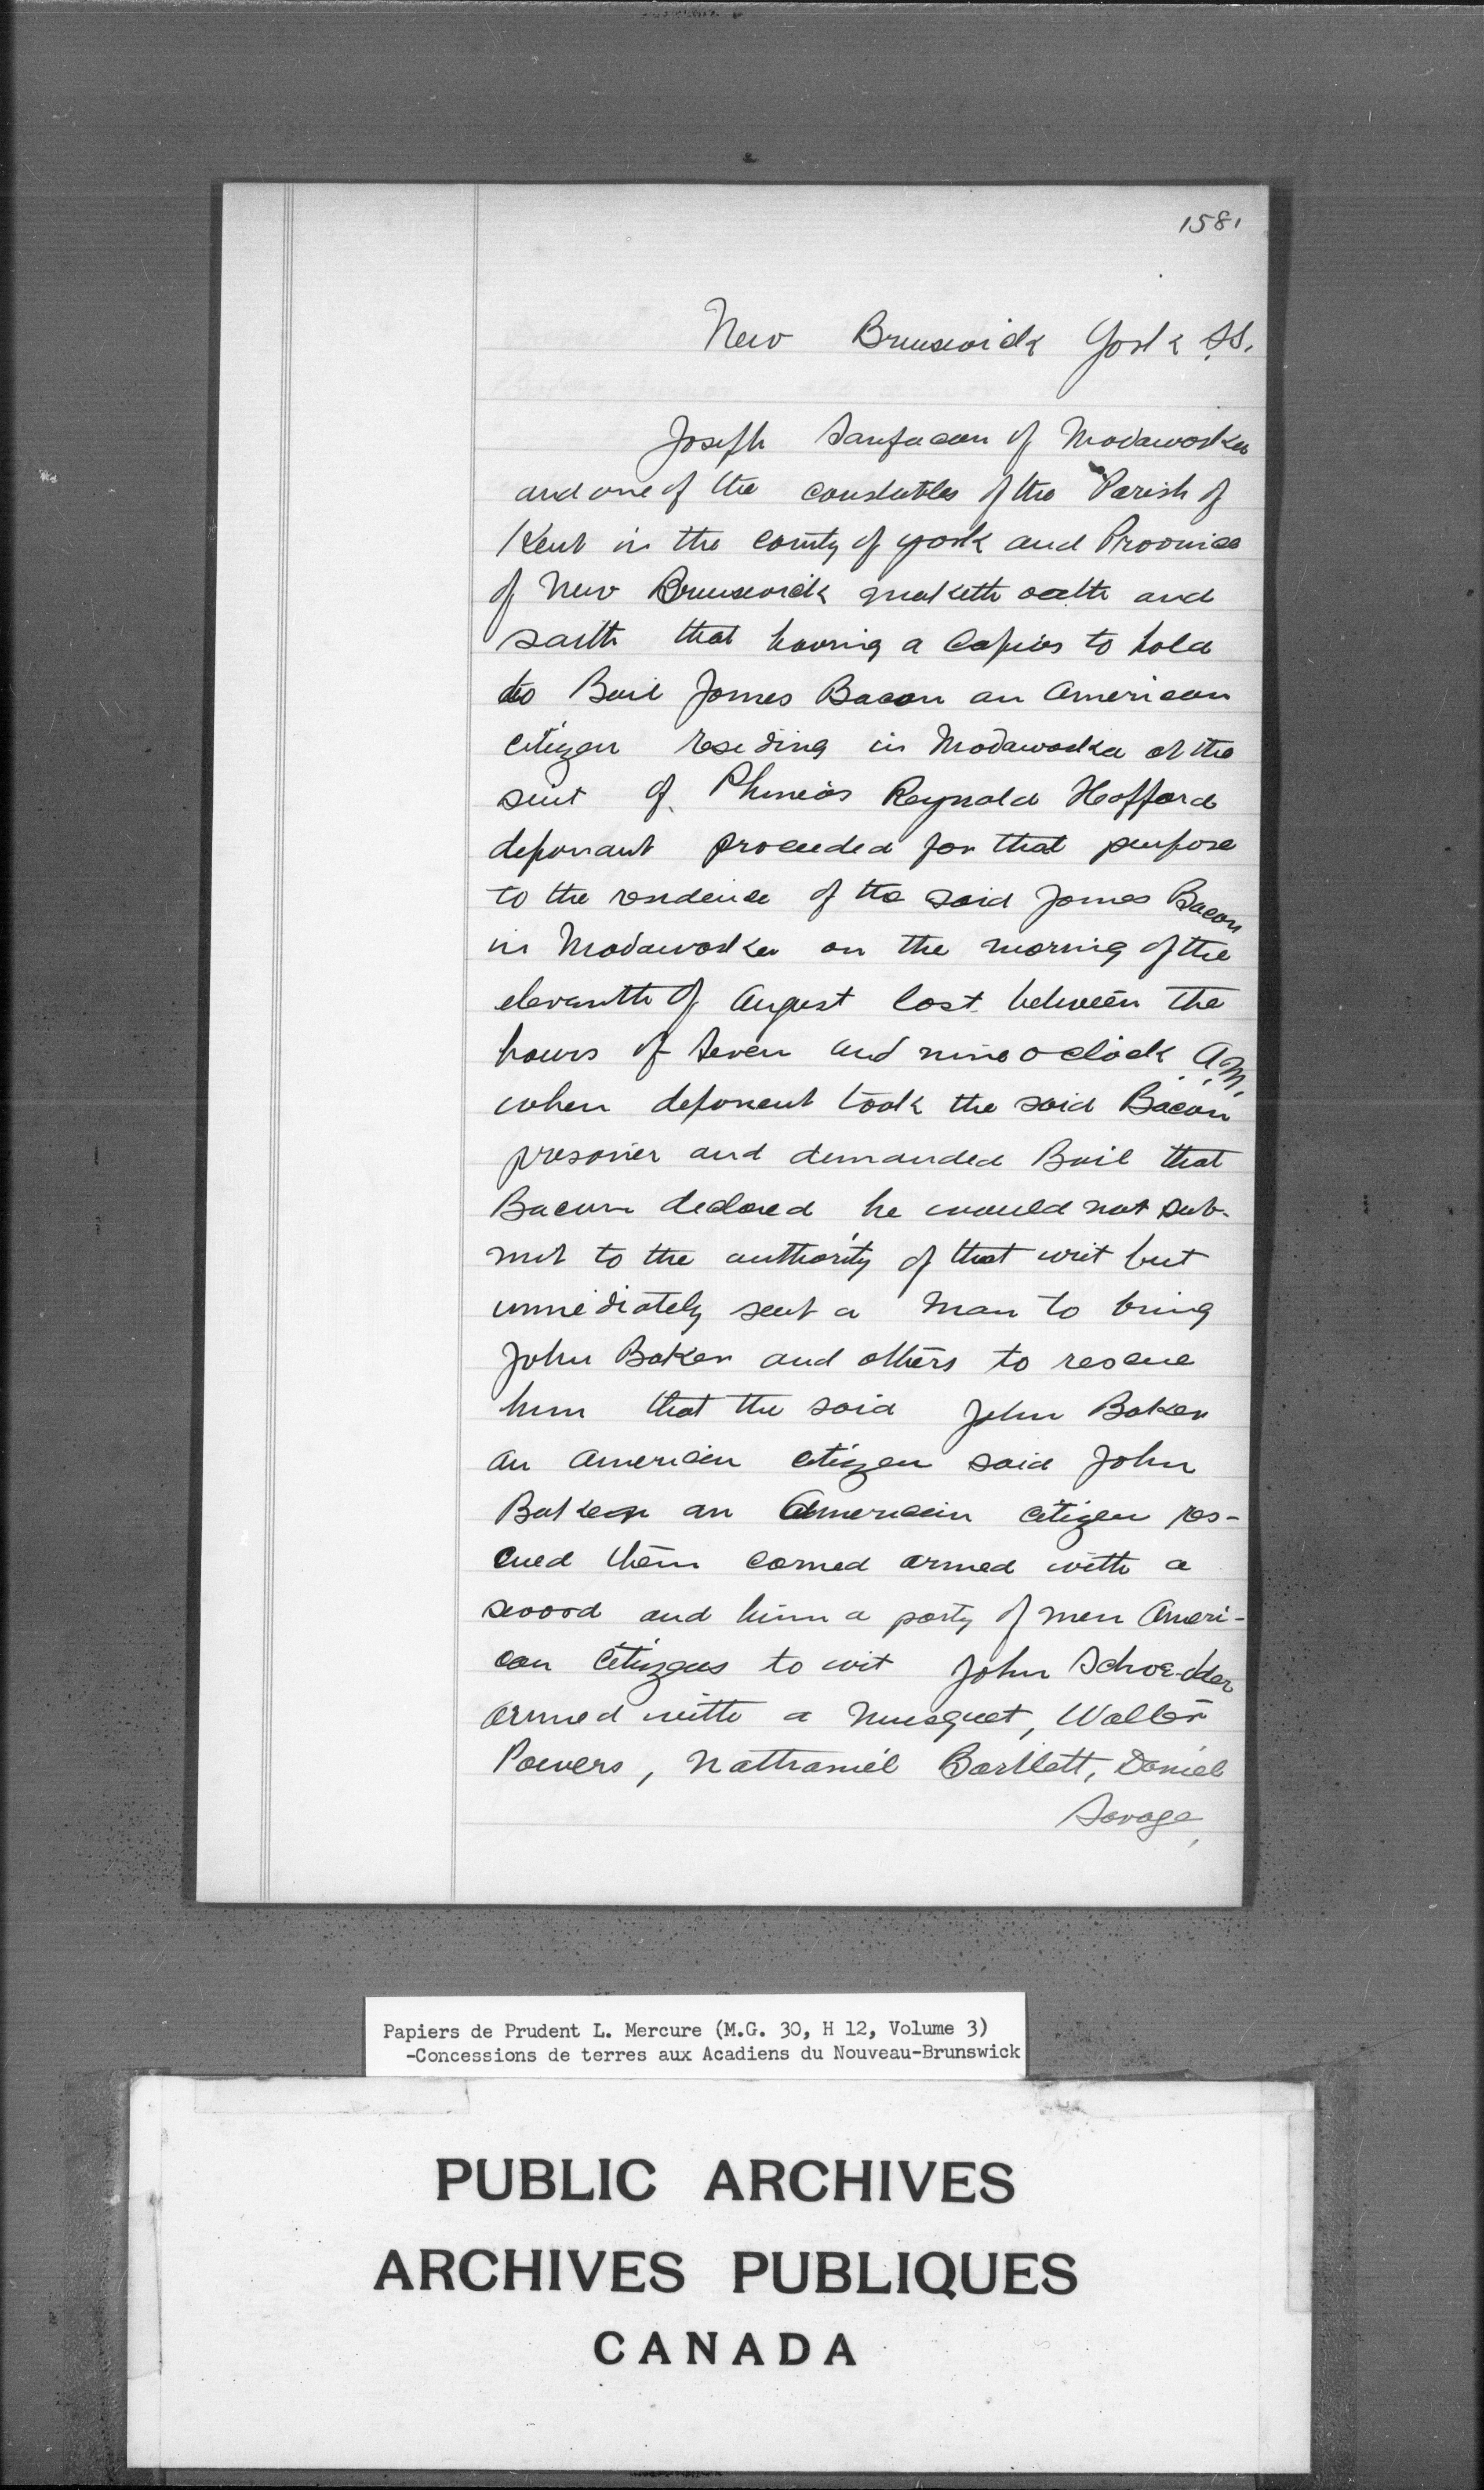 1581
New Brunswick York SS.
Joseph Sanfacon of Madawaska
and one of the constables of the Parish of
Kent in the county of york and Province
of New Brunswick maketh oath and
saith that having a Capias to hold
to Bail James Bacon an American
citizen residing in Madawaska at the
suit of Phineas Reynold Hafford
deponant proceeded for that purpose
to the residence of the said James Bacon
in Madawaska on the morning of the
eleventh of August last between the
hours of seven and nine o clock A.M.
when deponent took the said Bacon
prisoner and demanded Bail that
Bacon declared he would not sub-
mit to the authority of that writ but
immediately sent a man to bring
John Baker and others to rescue
him that the said John Baker
an american citizen said John
Baker an American citizen res-
cued them armed with a
sword and him a party of men Ameri-
can citizens to wit John
armed with a musquet, Walter
Powers, Nathaniel Bartlett, Daniel
Savage,
Papiers de Prudent L. Mercure (M.G. 30, H 12, Volume 3)
-Concessions de terres aux Acadiens du Nouveau-Brunswick
PUBLIC ARCHIVES
ARCHIVES PUBLIQUES
CANADA